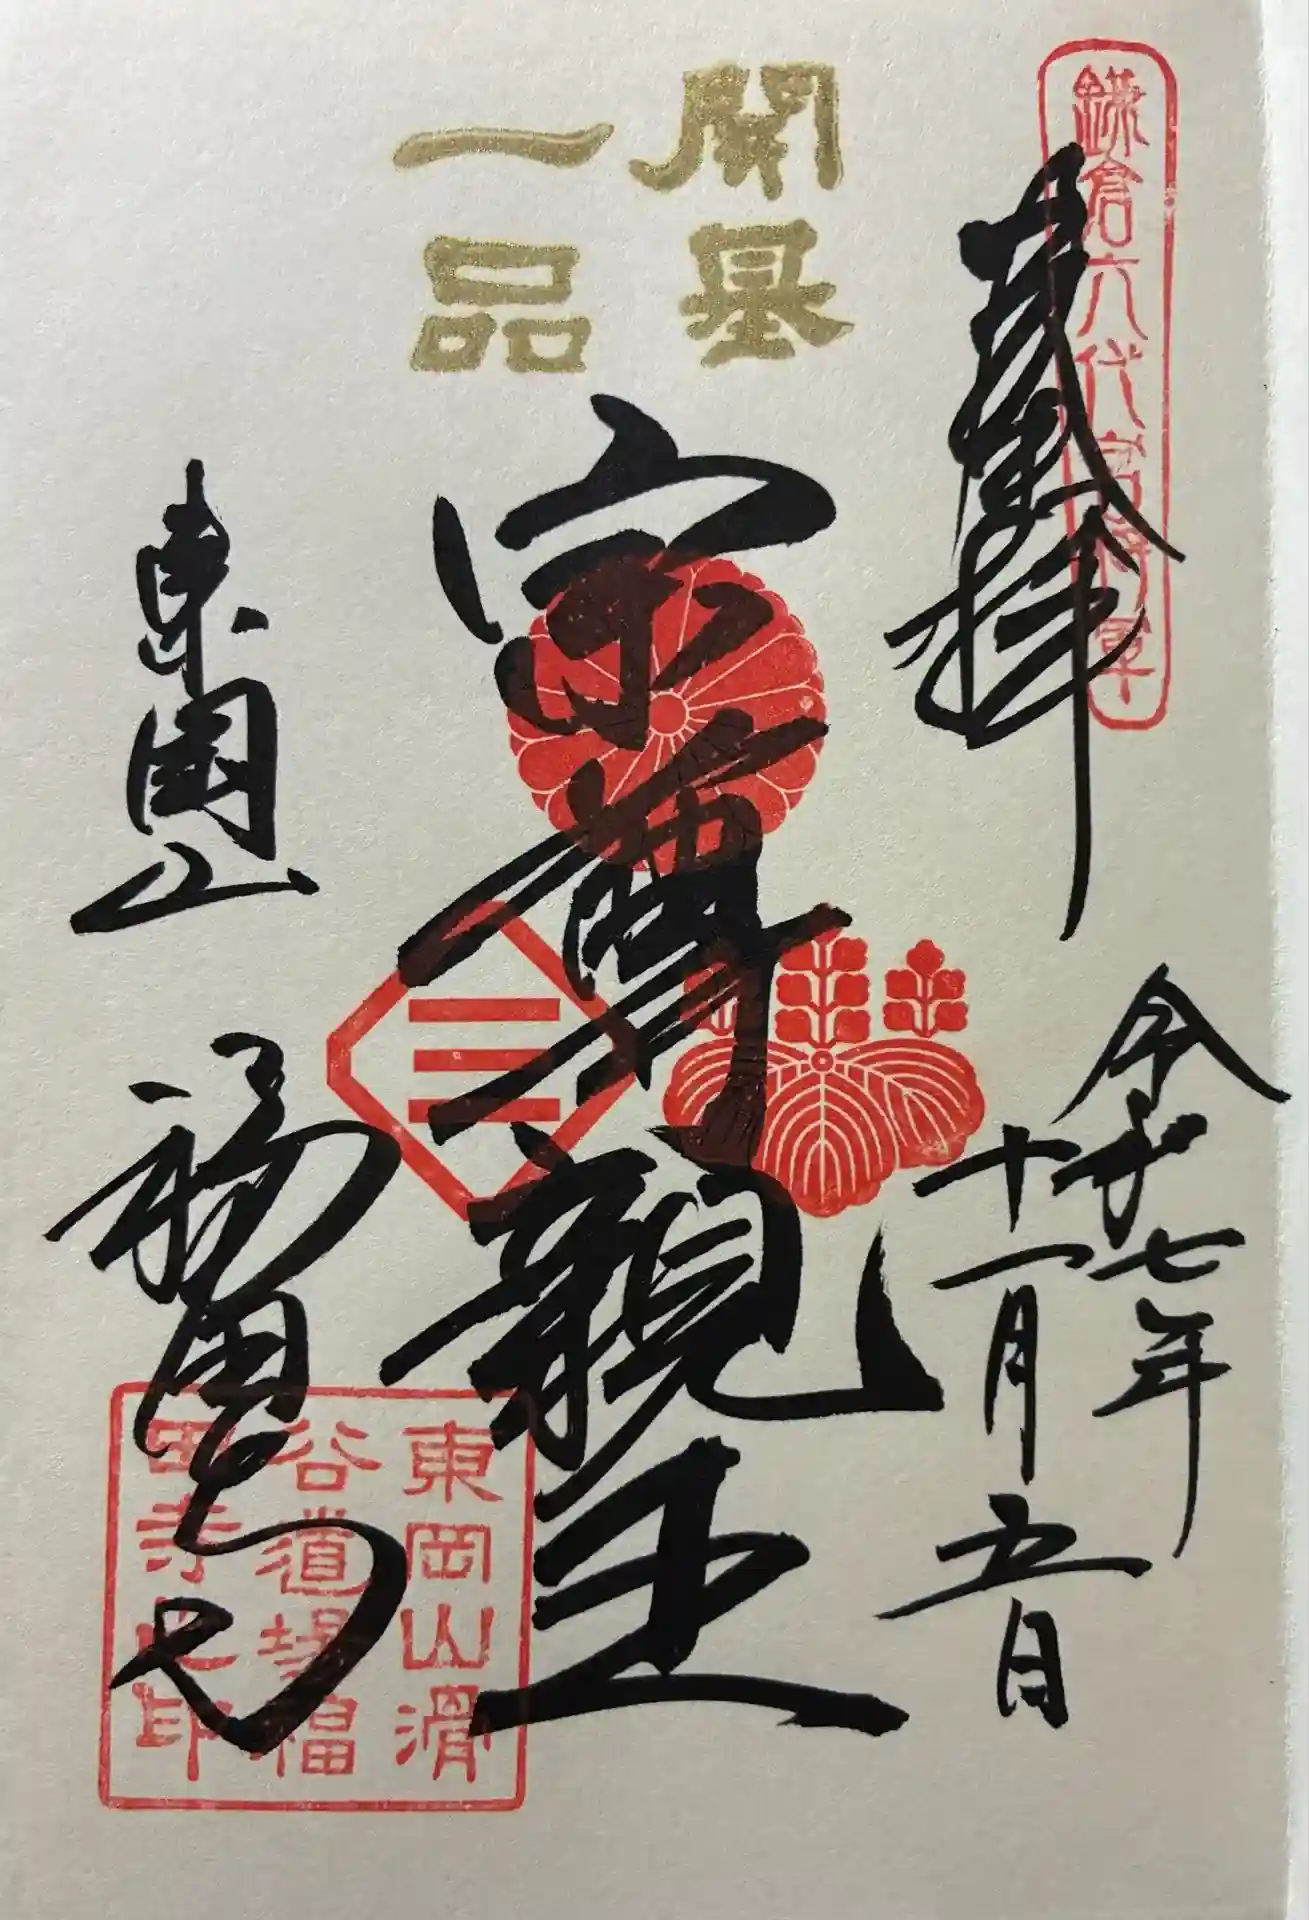 鎌倉六代宮将軍
奉拝
令和七年
十一月五日
開基
一品
宗尊親王
東岡山
福田寺
東岡山滑
谷道場福
田寺之印